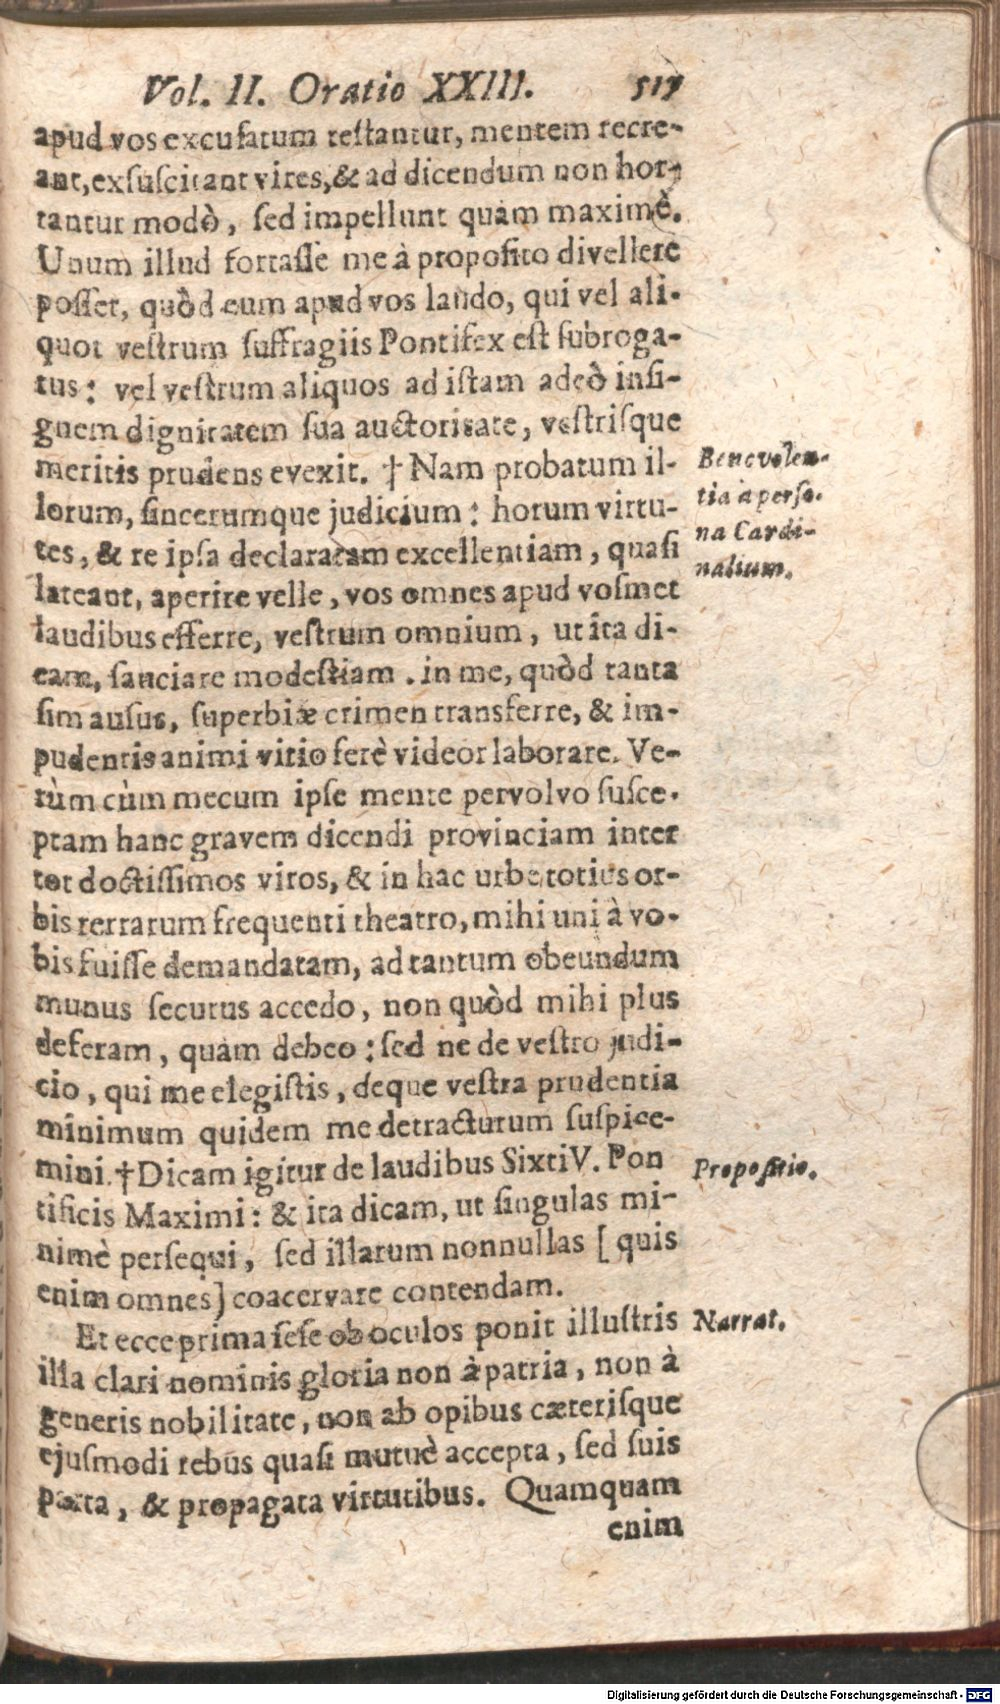 Vol. II. Oratio XXIII. 517
apud vos excuſatum teſtantur, mentem recre-
ant, exſuſcitant vires, & ad dicendum non hor-
tantur modò, ſed impellunt quàm maximè.
Unum illud fortaſſe me à propoſito divellere
poſſet, quòd eum apud vos laudo, qui vel ali-
quot veſtrum ſuffragiis Pontifex eſt ſubroga-
tus: vel veſtrum aliquos ad iſtam adeò inſi-
gnem dignitatem ſua auctoritate, veſtriſque
meritis prudens evexit. † Nam probatum il-
Benevolen-
lorum, ſincerumque judicium: horum virtu-
tia à perſo-
tes, & re ipſa declaratam excellentiam, quaſi
na Cardi-
lateant, aperire velle, vos omnes apud voſmet
nalium.
laudibus efferre, veſtrum omnium, ut ita di-
cam, ſauciare modeſtiam. in me, quòd tanta
ſim auſus, ſuperbiæ crimen transferre, & im-
pudentis animi vitio ferè videor laborare. Ve-
rùm cùm mecum ipſe mente pervolvo ſuſce-
ptam hanc gravem dicendi provinciam inter
tot doctiſſimos viros, & in hac urbe totius or-
bis terrarum frequenti theatro, mihi uni à vo-
bis fuiſſe demandatam, ad tantum obeundum
munus ſecutus accedo, non quòd mihi plus
deferam, quàm debeo: ſed ne de veſtro judi-
cio, qui me elegiſtis, deque veſtra prudentia
minimum quidem me detracturum ſuſpice-
mini. † Dicam igitur de laudibus Sixti V. Pon
Propoſitio.
tificis Maximi: & ita dicam, ut ſingulas mi-
nimè perſequi, ſed illarum nonnullas [quis
enim omnes] coacervare contendam.
Et ecce prima ſeſe ob oculos ponit illuſtris
Narrat.
illa clari nominis gloria non à patria, non à
generis nobilitate, non ab opibus cæteriſque
ejuſmodi rebus quaſi mutuè accepta, ſed ſuis
parta, & propagata virtutibus. Quamquam
enim
Digitalisierung gefördert durch die Deutsche Forschungsgemeinschaft - DFG